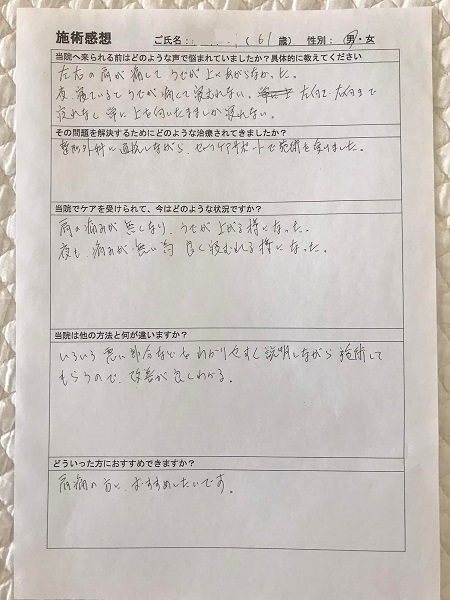 施術感想 ご氏名： (61歳) 性別：男・女
当院へ来られる前はどのような声で悩まれていましたか？具体的に教えてください
左右の肩が痛くて うでが上にあがらなかった。
夜、寝ていると うでが痛くて寝むれない。 左向き、右向きで
寝れなく 常に上を向いたままでしか寝れない。
その問題を解決するためにどのような治療されてきましたか？
整形外科に通院しながら、セルフケアサポートで施術を受けました。
当院でケアを受けられて、今はどのような状況ですか？
肩の痛みが無くなり、うでが上がる様になった。
夜も、痛みが無い為 良く寝むれる様になった。
当院は他の方法と何が違いますか？
いろいろ悪い部分などをわかりやすく説明しながら施術して
もらうので、改善が良くわかる。
どういった方におすすめできますか？
肩痛の方に、おすすめしたいです。